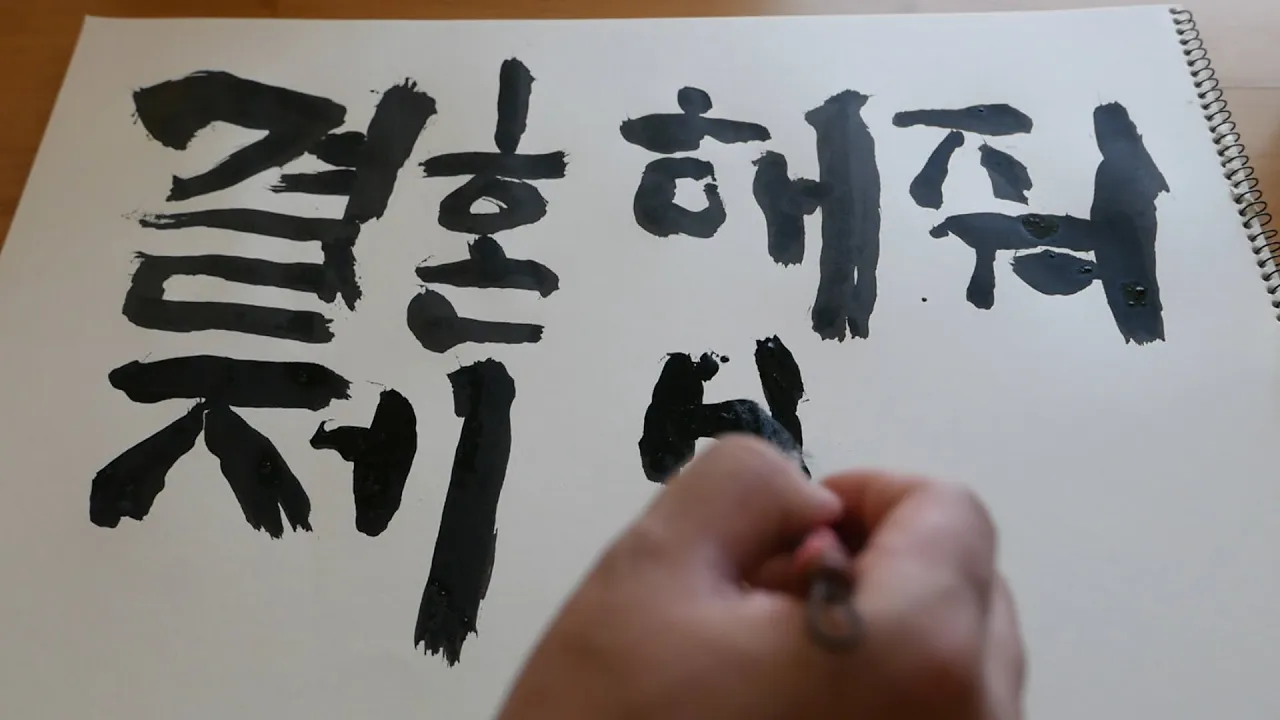 결혼해줘
제ㅂ